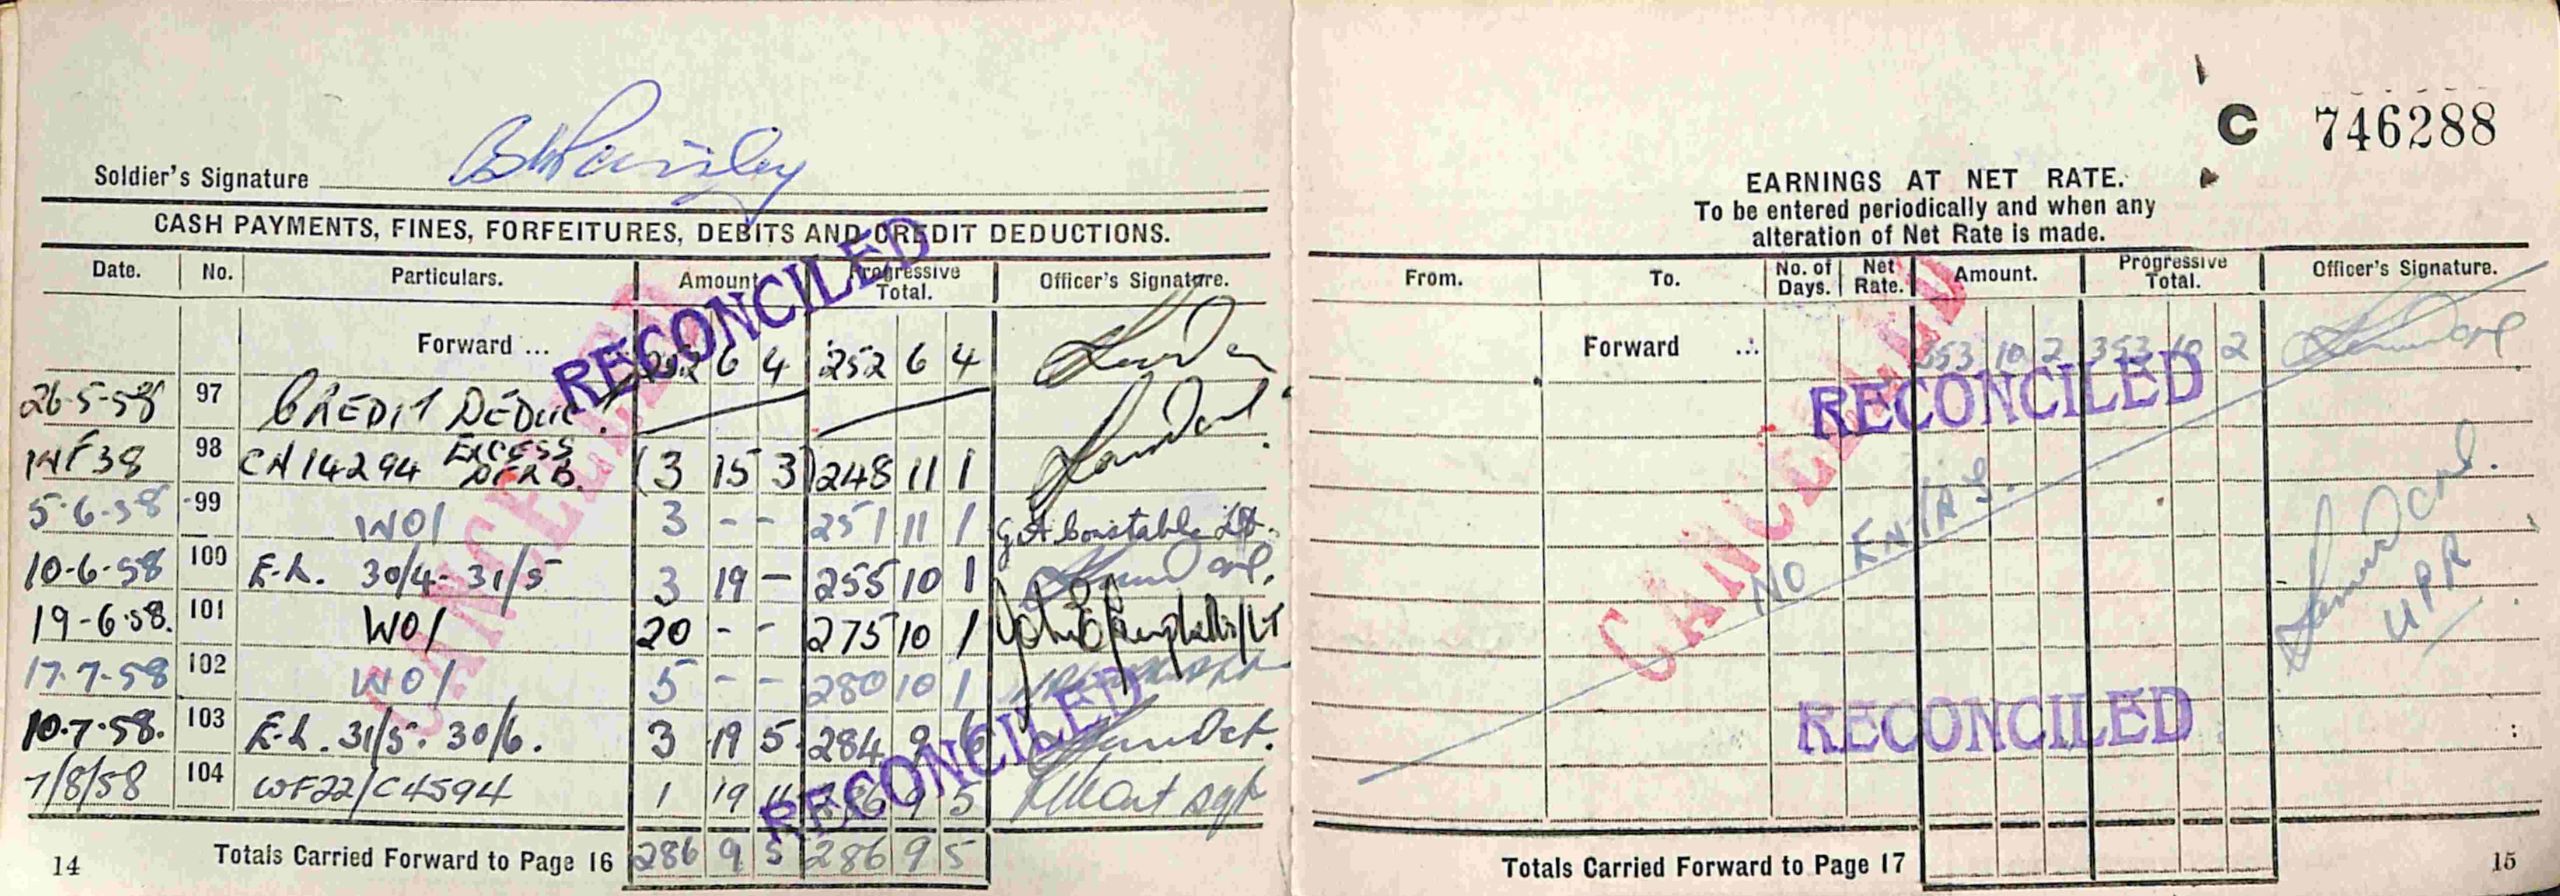 Soldier's Signature
CASH PAYMENTS, FINES, FORFEITURES, DEBITS AND CREDIT DEDUCTIONS.
Date. No. Particulars. Amount Progressive Total. Officer's Signature.
Forward ... 252 6 4 252 6 4
26-5-58 97 CREDIT DEDUC.
98 CN 14294 EXCESS (3 15 3) 248 11 1
5-6-58 99 WO1 3 - - 251 11 1 G A Constable Lt.
10-6-58 100 E.A. 30/4 - 31/5 3 19 - 255 10 1
19-6-58. 101 WO1 20 - - 275 10 1
17.7-58 102 WO1 5 - - 280 10 1
10.7.58. 103 E.A. 31/5. 30/6. 3 19 5 284 9 6
7/8/58 104 WF22/C4594 1 19 11 286 9 5 Sgt
Totals Carried Forward to Page 16 286 9 5 286 9 5
14
RECONCILED
CANCELLED
RECONCILED
C 746288
EARNINGS AT NET RATE.
To be entered periodically and when any
alteration of Net Rate is made.
From. To. No. of Days. Net Rate. Amount. Progressive Total. Officer's Signature.
Forward ... 353 10 2 353 10 2
RECONCILED
CANCELLED
NO ENTRIES.
UPR
RECONCILED
Totals Carried Forward to Page 17
15